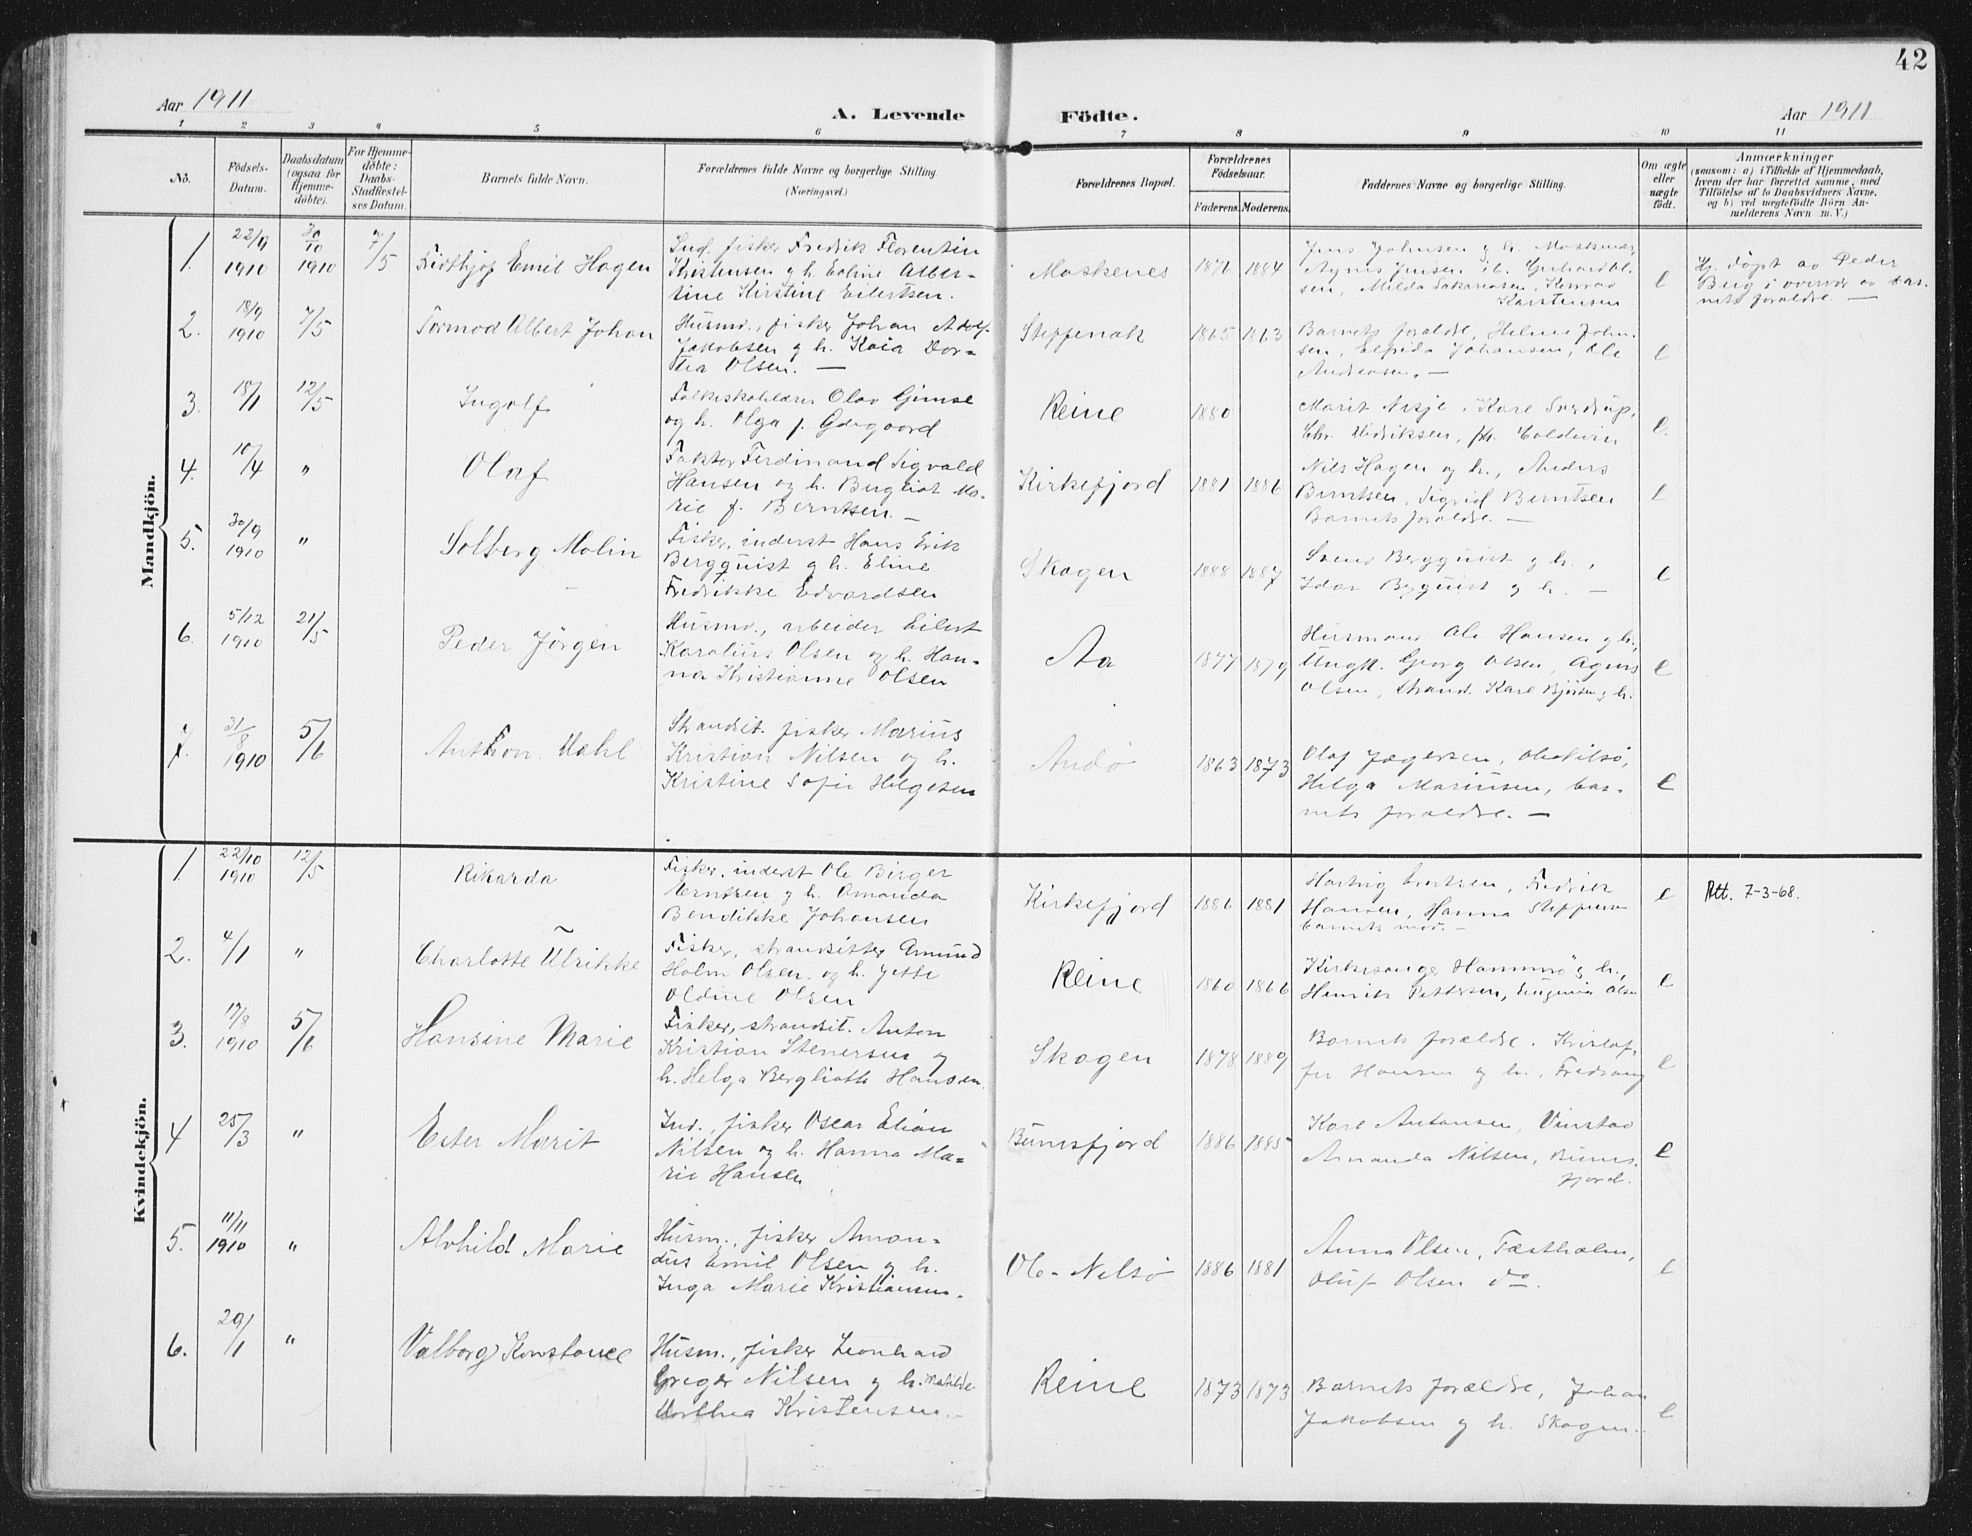 42
Aar 1911
A. Levende Födte.
Aar 1911
1 2 3 4 5 6 7 8 9 10 11
No.
Födsels-Datum.
Daabsdatum (ogsaa for Hjemme-döbte).
For Hjemme-döbte: Daabs-Stadfæstel-ses Datum.
Barnets fulde Navn.
Forældrenes fulde Navne og borgerlige Stilling. (Næringsvei.)
Forældrenes Bopæl.
Forældrenes Födselsaar.
Faderens. Moderens.
Faddernes Navne og borgerlige Stilling.
Om ægte eller uægte födt.
Anmærkninger
(saasom: a) i Tilfælde af Hjemmedaab,
hvem der har forrettet samme, med
Tilföielse af to Daabsvidners Navne,
og b) ved uægtefödte Börn An-
melderens Navn m. V.)
Mandkjön.
1. 22/9 1910 30/10 1910 7/5 Fridthjof Emil Hagen
Ind. fisker Fredrik Florentin
Kristensen g h. Eoline Alber-
tine Kirstine Eilertsen.
Moskenes 1876 1884
Jens Johnsen g h. Moskenes,
Agnes Jensen
sen, Milda Sakariasen, Konrad
Karstensen
e
Hj. døpt av Peder
Berg i overvær av bar-
nets forældre. —
2. 18/9 1910 7/5 Tormod Albert Johan
Husmd., fisker Johan Adolf
Jakobsen g h. Kaia Dor-
thea Olsen. —
Steffenak 1865 1863
Barnets forældre, Helmer John-
sen, Elfrida Johansen, Ole
Andreasen. —
e
3. 18/1 12/5 Ingolf
Folkeskolelærer Olav Gimse
og h. Olga f. Ødegaard
Reine 1880
Marit Nesje, Kare Sverdrup,
Chr. Fredriksen, fr. Coldevin
e.
4. 10/4 " Olaf
Faktor Ferdinand Sigvald
Hansen og h. Bergliot Ma-
rie f. Berntsen. —
Kirkefjord 1881 1886
Nils Hagen og h., Anders
Berntsen, Sigrid Berntsen
Barnets forældre. —
e
5. 30/9 1910 " Solberg Malin
Fisker, inderst Hans Erik
Bergquist g h. Eline
Fredrikke Edvardsen
Skagen 1888 1887
Svend Bergquist g h.,
Idar Bergquist g h. —
e
6. 5/12 1910 21/5 Peder Jørgen
Husmd., arbeider Eilert
Karolius Olsen og h. Han-
na Kristianne Olsen
Aa 1877 1879
Husmand Ole Hansen g h.,
Ungk. Georg Olsen, Agnes
Olsen, Strand. Karl Bjørsen g h.
e
7. 31/8 1910 5/6 Anthon Dahl
Strandsit. fisker Marius
Kristian Nilsen og h.
Kristine Sofie Helgesen
Andø 1863 1873
Olaf Jægersen, Ole Nilsø,
Helga Mariusen, bar-
nets forældre. —
e
Kvindekjön.
1. 22/10 1910 12/5 Rikarda
Fisker, inderst Ole Birger
Berntsen g h. Amanda
Bendikke Johansen
Kirkefjord 1886 1881
Hartvig Evertsen, Fredrik
Hansen, Hanna Steffensen
barnets mor. —
e
Att. 7-3-68.
2. 4/1 " Charlotte Ulrikke
Fisker, strandsitter Amund
Holm Olsen og h. Jette
Oldine Olsen
Reine 1860 1866
Kirkesanger Hammerø g h.,
Henrik Pettersen, Eugenia Olsen
e
3. 17/8 1910 5/6 Hansine Marie
Fisker, strandsit. Anton
Kristian Stenersen og
h. Helga Berglioth Hansen.
Skagen 1878 1889
Barnets forældre. Kristof-
fer Hansen g h., Fredvang
e
4 25/3 " Ester Marit
Ind., fisker Oscar Elian
Nilsen og h. Hanna Ma-
rie Hansen
Bunesfjord 1886 1885
Karl Antonsen, Vinstad
Amanda Nilsen, Bunes-
fjord.
e
5. 11/11 1910 " Alvhild Marie
Husm., fisker Aman-
dus Emil Olsen g h.
Inga Marie Kristiansen.
Ole-Nilsø 1886 1881
Anna Olsen, Tæstholm,
Oluf Olsen do.
e
6. 29/1 " Valborg Konstance
Husm., fisker Leonhard
Greger Nilsen g h. Matilde
Dorthea Kristensen. —
Reine 1873 1873
Barnets forældre, Johan
Jakobsen g h. Skagen.
e